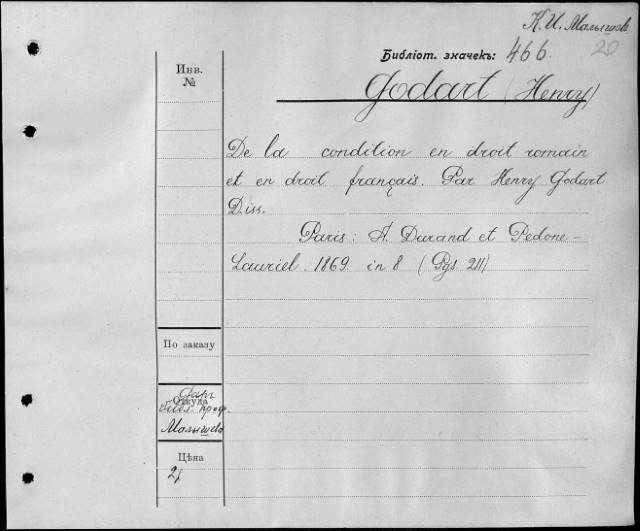 К. И. Малышев.
20
Библiот. значекъ: 466.
Инв.
№
Godart (Henry)
De la condition en droit romain
et en droit français. Par Henry Godart
Diss.
Paris: A. Durand et Pedone-
Lauriel. 1869. in 8 (Pgs 211)
По заказу
Откуда
Даръ
библ. проф.
Малышева
Цѣна